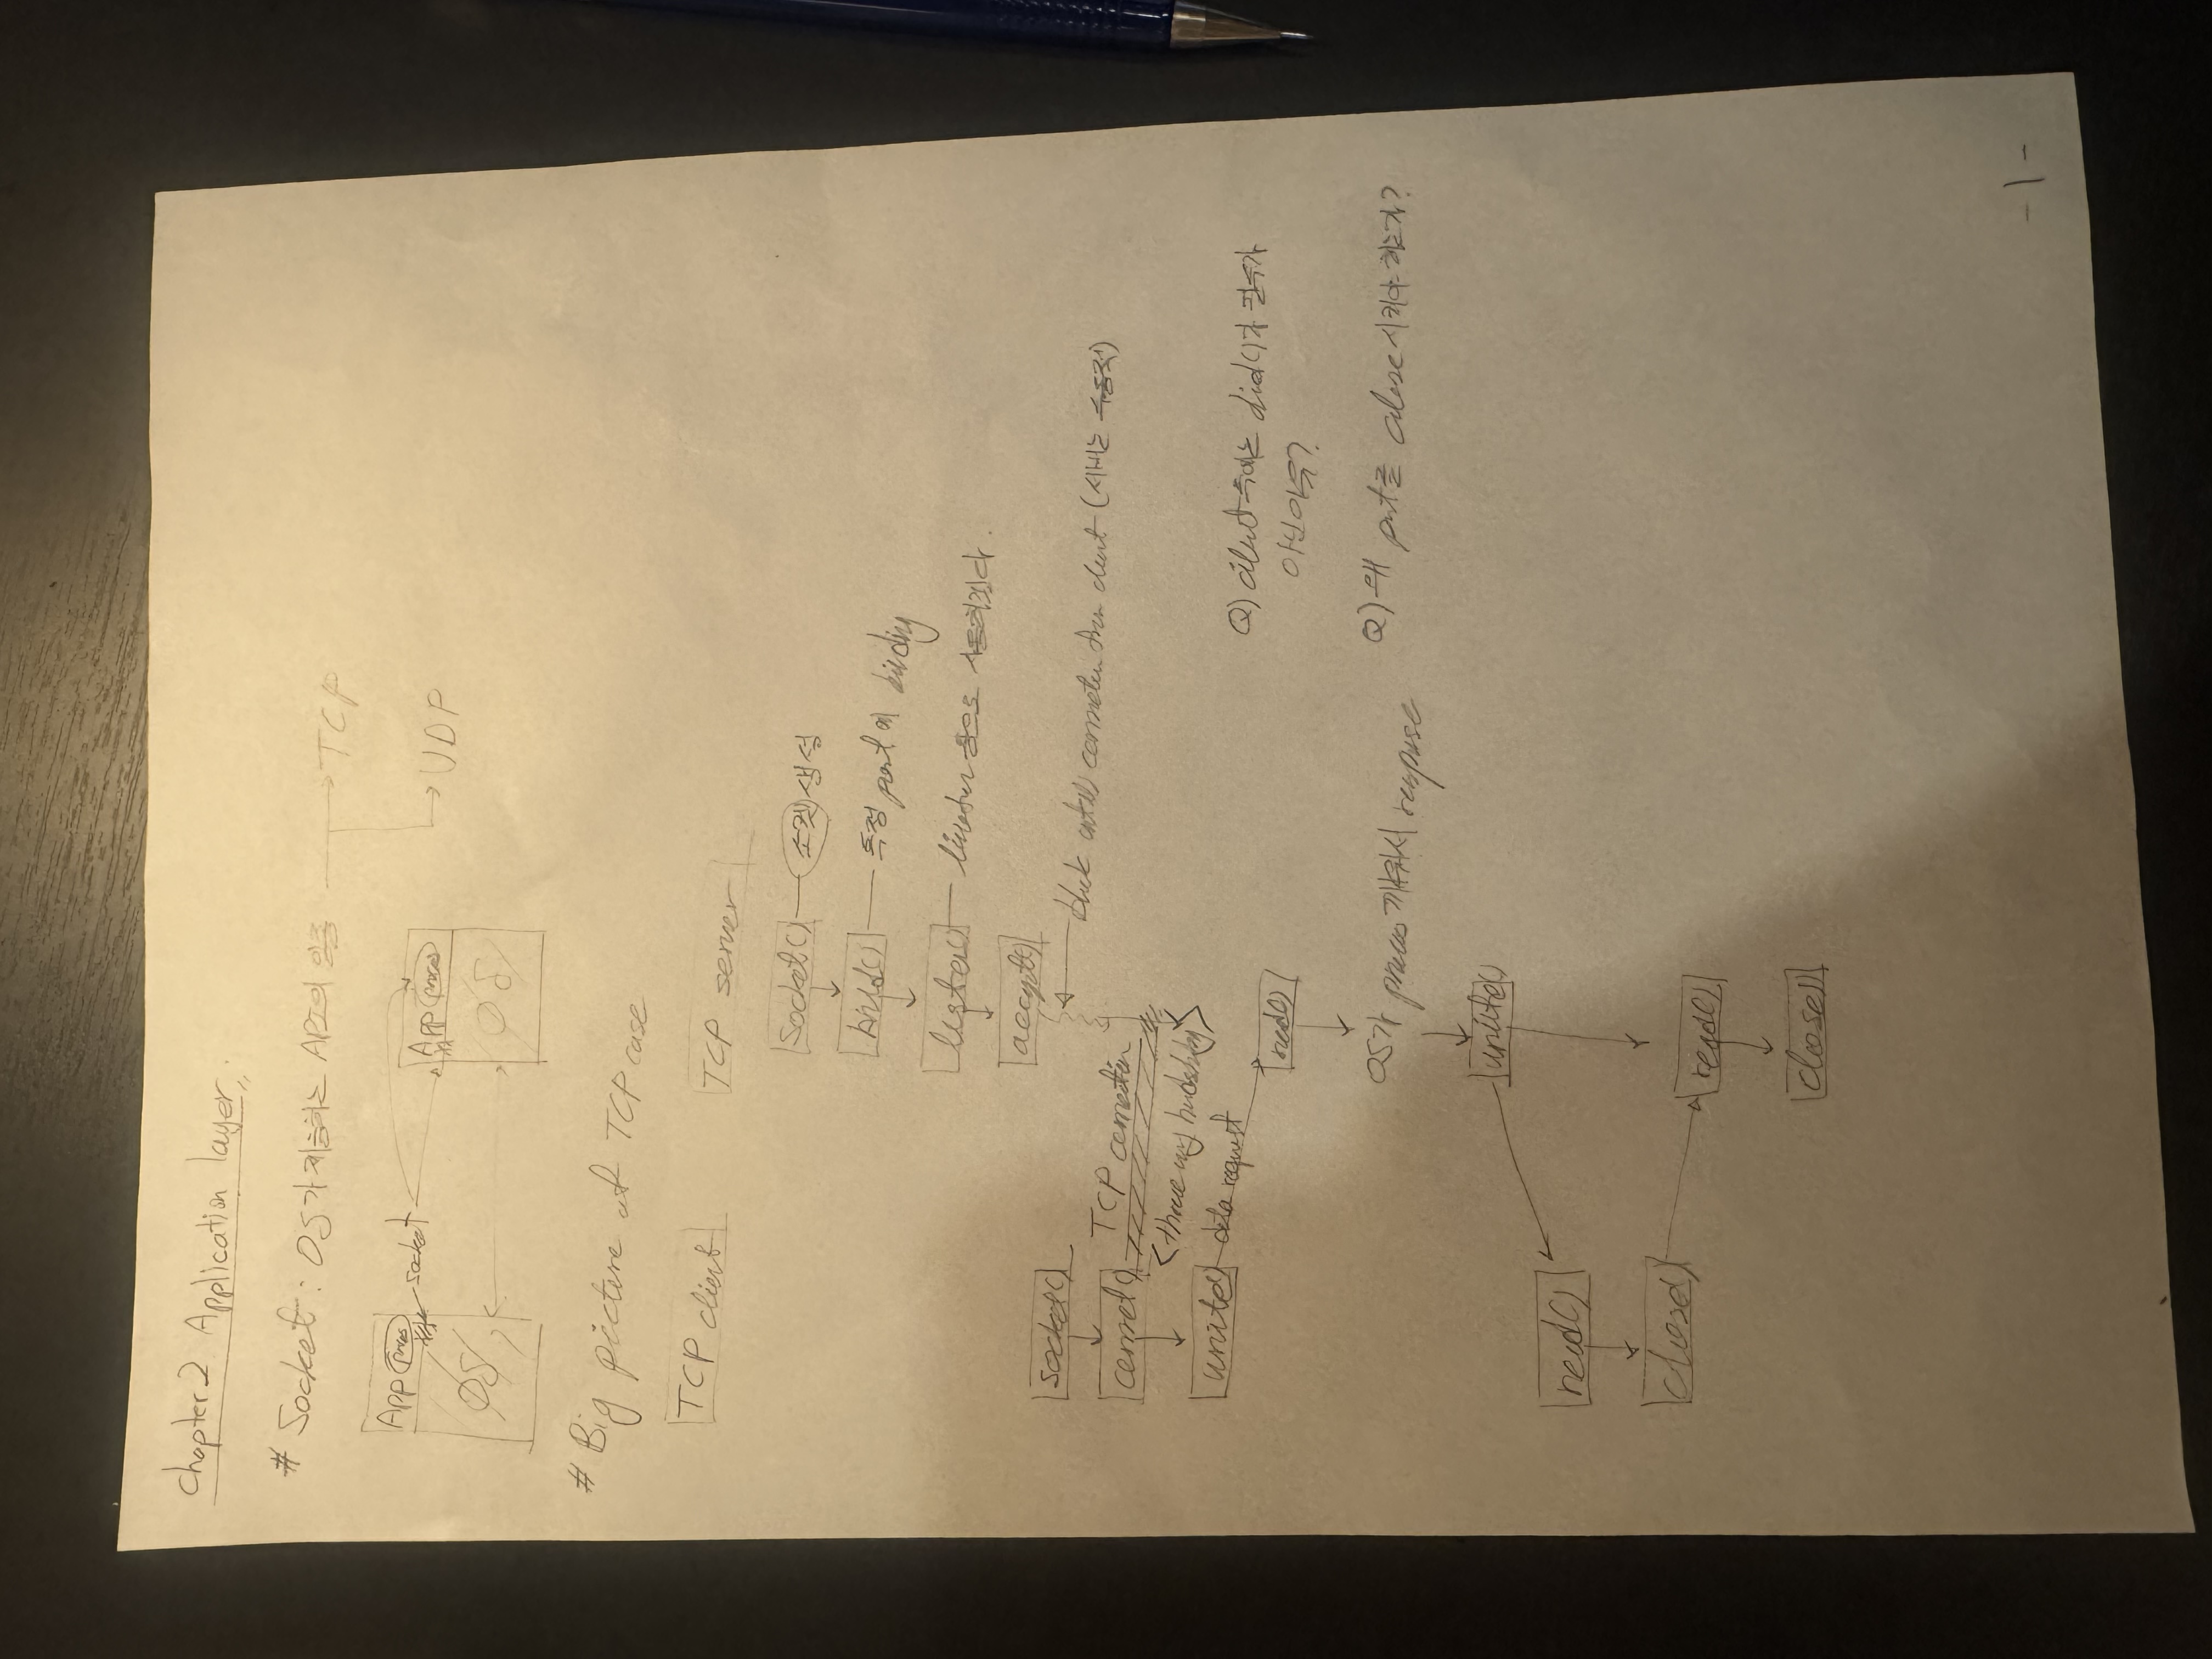 Chapter 2 Application layer
# Socket : OS가 제공하는 API의 일종 → TCP
→ UDP
App proces
socket
App proces
OS
OS
# Big picture of TCP case
TCP client
TCP server
socket() — 소켓 생성
bind() — 특정 port에 binding
listen() — listen 용으로 사용하겠다.
accept()
block until connection from client (서버는 수동적)
socket()
connect()
TCP connection
<three way handshking>
write()
data request
read()
OS가 process 깨워서 response
write()
read()
close()
read()
close()
Q) client 측에는 bind()가 필수가
아닌이유?
Q) 왜 port를 close 시켜야 하는가?
-1-